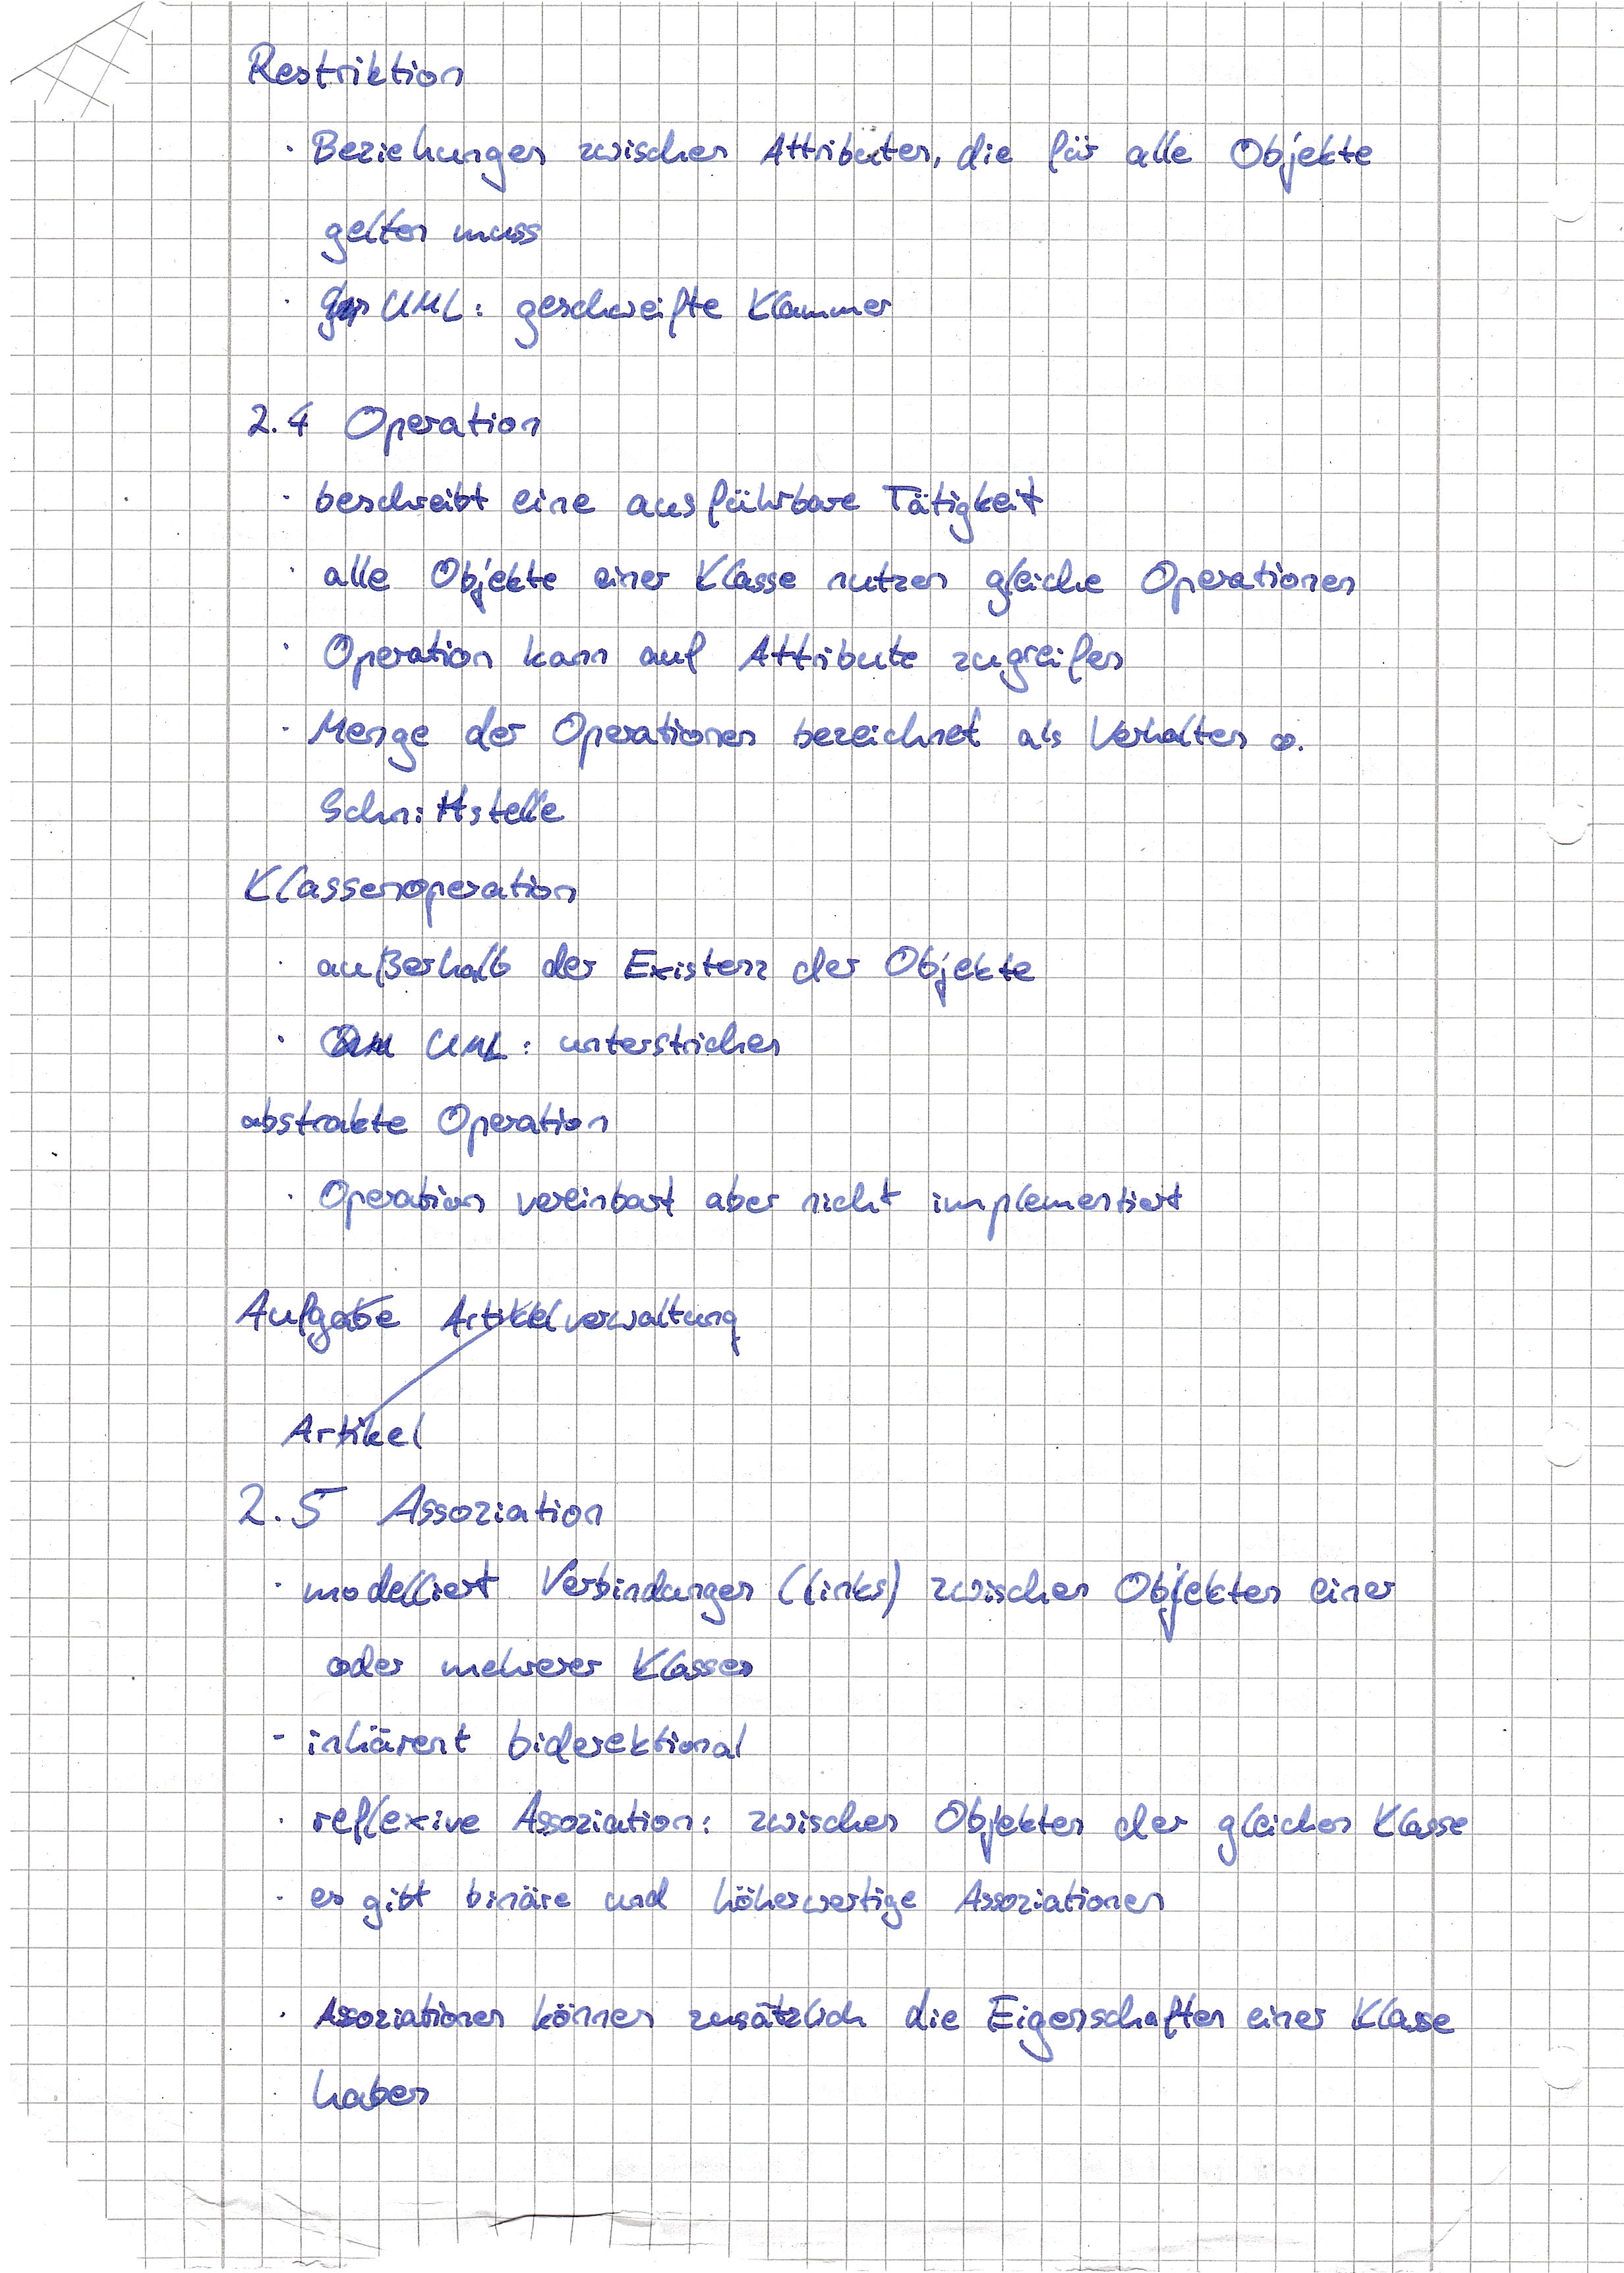 Restriktion
· Beziehungen zwischen Attributen, die für alle Objekte
gelten muss
· UML: geschweifte Klammer
2.4 Operation
· beschreibt eine ausführbare Tätigkeit
· alle Objekte einer Klasse nutzen gleiche Operationen
· Operation kann auf Attribute zugreifen
· Menge der Operationen bezeichnet als Verhalten o.
Schnittstelle
Klassenoperation
· außerhalb der Existenz der Objekte
· UML: unterstrichen
abstrakte Operation
· Operation vereinbart aber nicht implementiert
Aufgabe Artikelverwaltung
Artikel
2.5 Assoziation
· modelliert Verbindungen (links) zwischen Objekten einer
oder mehrerer Klassen
- inhärent biderektional
· reflexive Assoziation: zwischen Objekten der gleichen Klasse
· es gibt binäre und höherwertige Assoziationen
· Assoziationen können zusätzlich die Eigenschaften einer Klasse
haben